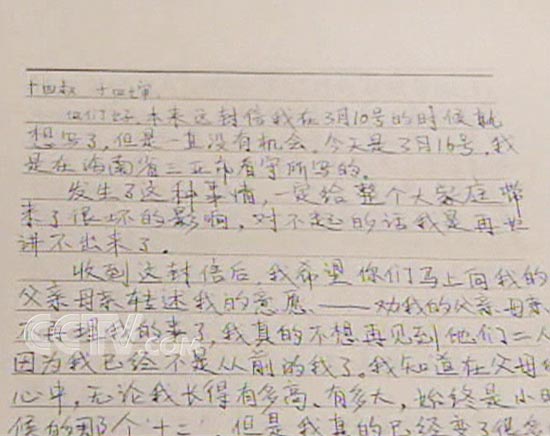 十四叔 十四婶
你们好 本来这封信我在3月10号的时候就
想写了，但是一直没有机会。今天是3月16号，我
是在海南省三亚市看守所写的。
发生了这种事情，一定给整个大家庭带
来了很坏的影响，对不起的话我是再也
讲不出来了。
收到这封信后，我希望你们马上向我的
父亲母亲转述我的意愿——劝我的父亲母亲
不再理我的事了，我真的不想再见到他们二人
因为我已经不是从前的我了。我知道在父母的
心中，无论我长得有多高、有多大，始终是小时
候的那个"十二"，但是我真的已经变了很多
CCTV.com